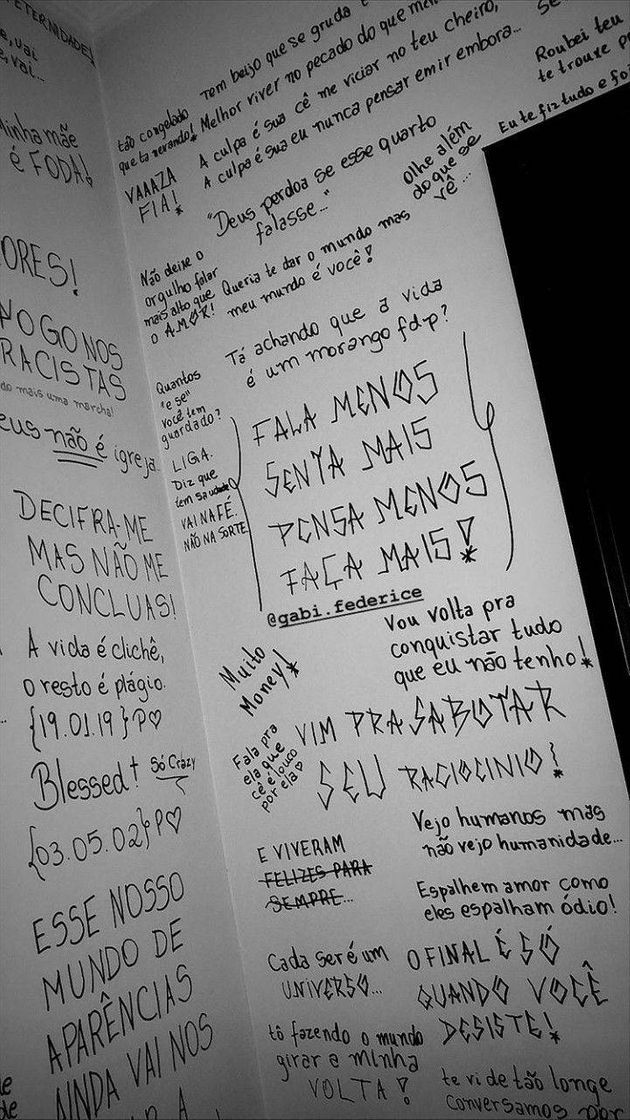 ETERNIDADE!
vai
vai...
Minha mãe
é FODA!
ORES!
FOGO NOS
RACISTAS
do mais uma marcha!
eus não é igreja.
DECIFRA-ME
MAS NÃO ME
CONCLUAS!
A vida é clichê,
o resto é plágio.
{19.01.19} P♡
Blessed† Só Crazy
{03.05.02} P♡
ESSE NOSSO
MUNDO DE
APARÊNCIAS
AINDA VAI NOS
tão congelado
que ta nevando!
VAAAZA
FIA!
Tem beijo que se gruda
Melhor viver no pecado do que
A culpa é sua cê me viciar no teu cheiro,
A culpa é sua eu nunca pensar em ir embora...
SE
Roubei teu
te trouxe
Eu te fiz tudo e foi
"Deus perdoa se esse quarto
falasse..."
Olhe além
do que se
vê...
Não deixe o
orgulho falar
mais alto que
o AMOR!
Queria te dar o mundo mas
meu mundo é você!
Tá achando que a vida
é um morango fdp?
Quantos
"e se"
você tem
guardado?
LIGA.
Diz que
tem saudade
VAI NA FÉ.
NÃO NA SORTE
FALA MENOS
SENTA MAIS
PENSA MENOS
FAÇA MAIS!
@gabi.federice
Muito
Money!
Vou volta pra
conquistar tudo
que eu não tenho!
Fala pra
ela que
cê é louco
por ela♡
VIM PRA SABOTAR
SEU RACIOCINIO!
E VIVERAM
FELIZES PARA
SEMPRE...
Vejo humanos mas
não vejo humanidade...
Espalhem amor como
eles espalham ódio!
Cada ser é um
UNIVERSO...
O FINAL É SÓ
QUANDO VOCÊ
DESISTE!
tô fazendo o mundo
girar a minha
VOLTA!
te vi de tão longe
conversamos por